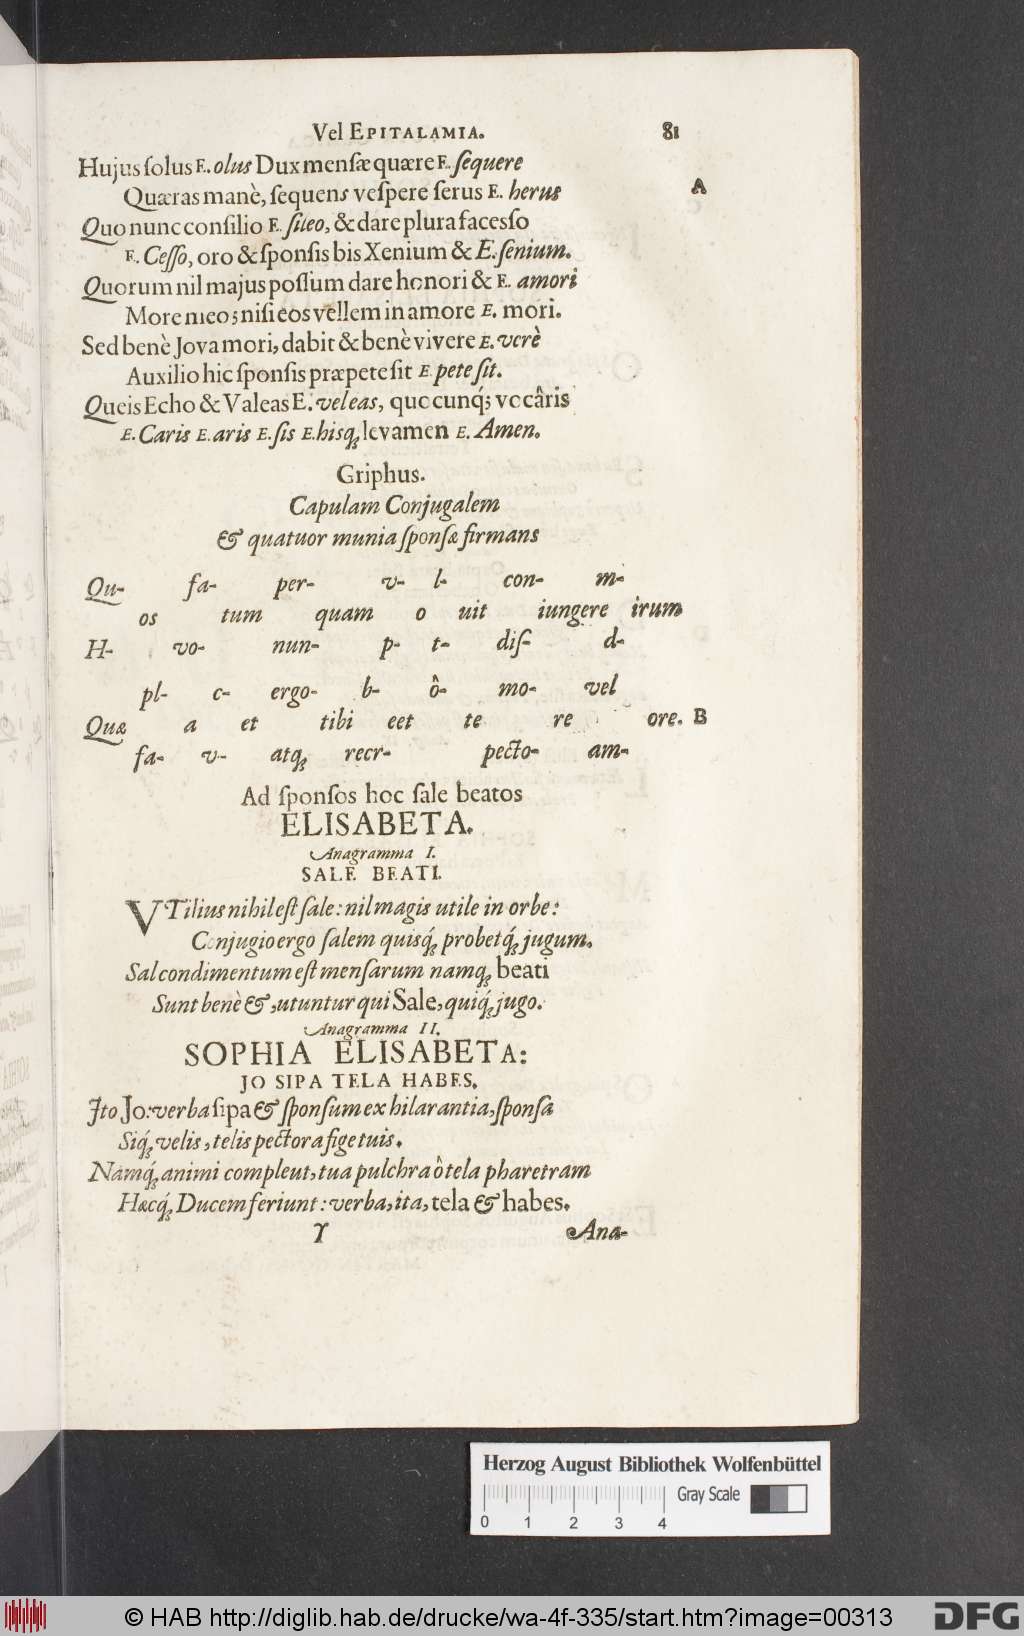 Vel EPITALAMIA. 81
Hujus ſolus E. olus Dux menſæ quære E. ſequere
A
Quæras manè, ſequens veſpere ſerus E. herus
Quo nunc conſilio E. ſileo, & dare plura faceſſo
E. Ceſſo, oro & ſponſis bis Xenium & E. ſenium.
Quorum nil majus poſſum dare honori & E. amori
More meo; niſi eos vellem in amore E. mori.
Sed benè Jova mori, dabit & benè vivere E. verè
Auxilio hic ſponſis præpete ſit E. pete ſit.
Queis Echo & Valeas E. veleas, quocunq́; vocâris
E. Caris E. aris E. ſis E. hisq; levamen E. Amen.
Griphus.
Capulam Conjugalem
& quatuor munia ſponſæ firmans
Qu- fa- per- v- l- con- m-
os tum quam o uit iungere irum
H- vo- nun- p- t- diſ- d-
pl- c- ergo- b- ô- mo- vel
Quæ a et tibi eet te re ore. B
fa- v- atq; recr- pecto- am-
Ad ſponſos hoc ſale beatos
ELISABETA.
Anagramma I.
SALE BEATI.
VTilius nihil eſt ſale: nil magis utile in orbe:
Conjugio ergo ſalem quisq́; probetq́; jugum.
Sal condimentum eſt menſarum namq; beati
Sunt benè &, utuntur qui Sale, quiq́; jugo.
Anagramma II.
SOPHIA ELISABETA:
JO SIPA TELA HABES.
Ito Jo: verba ſipa & ſponſum exhilarantia, ſponſa
Siq́; velis, telis pectora fige tuis.
Namq́; animi compleut, tua pulchra ô tela pharetram
Hæcq́; Ducem feriunt: verba, ita, tela & habes.
Y Ana-
Herzog August Bibliothek Wolfenbüttel
Gray Scale
0 1 2 3 4
© HAB http://diglib.hab.de/drucke/wa-4f-335/start.htm?image=00313
DFG